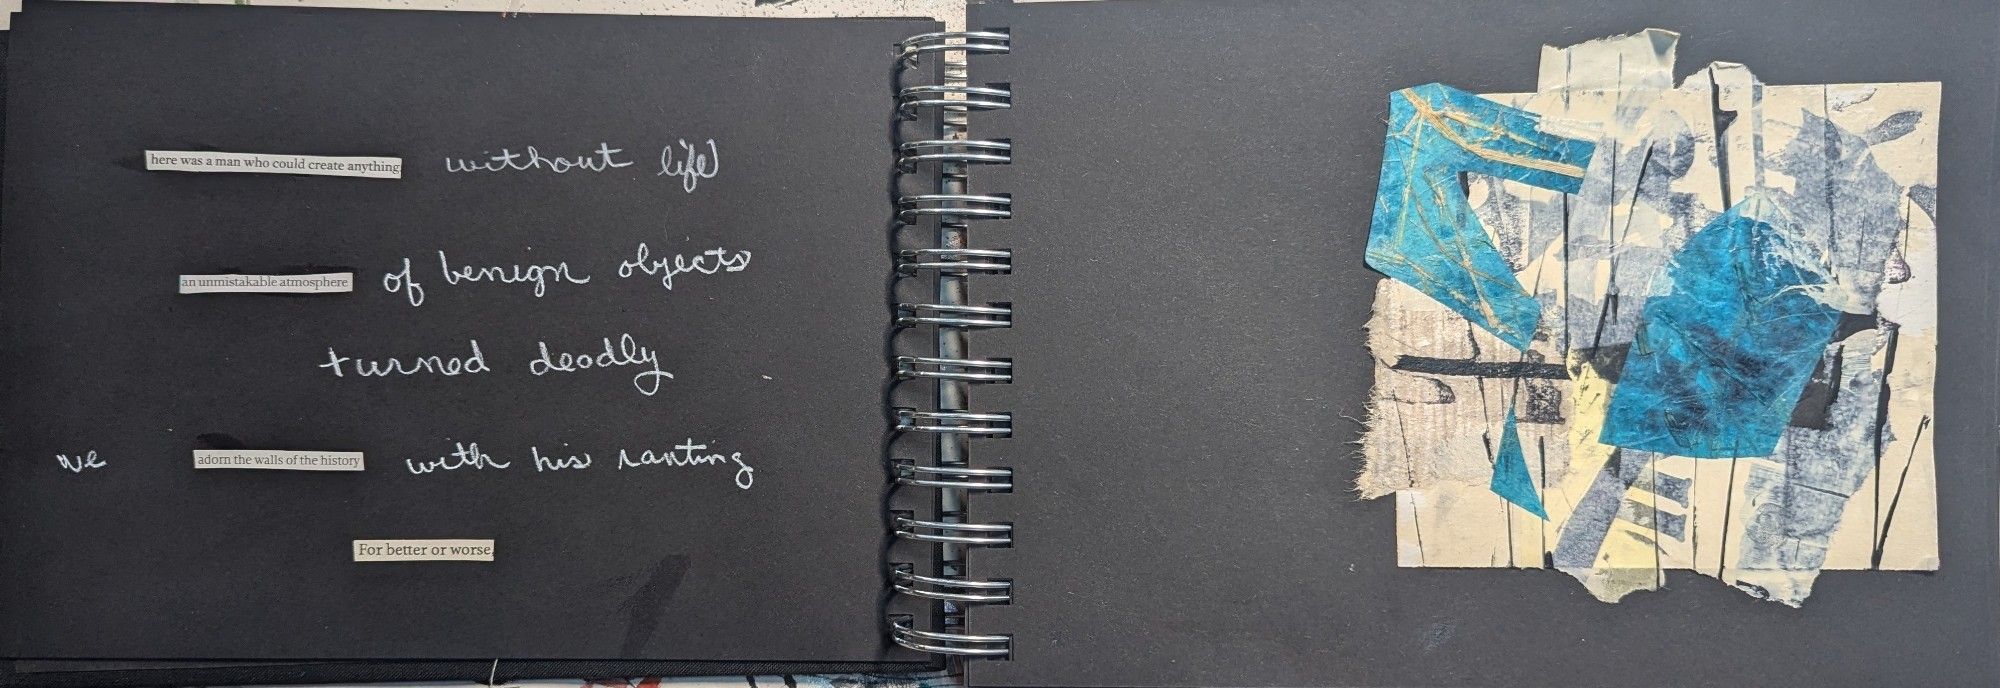 here was a man who could create anything without life
an unmistakable atmosphere of benign objects
turned deadly
we adorn the walls of the history with his ranting
For better or worse,